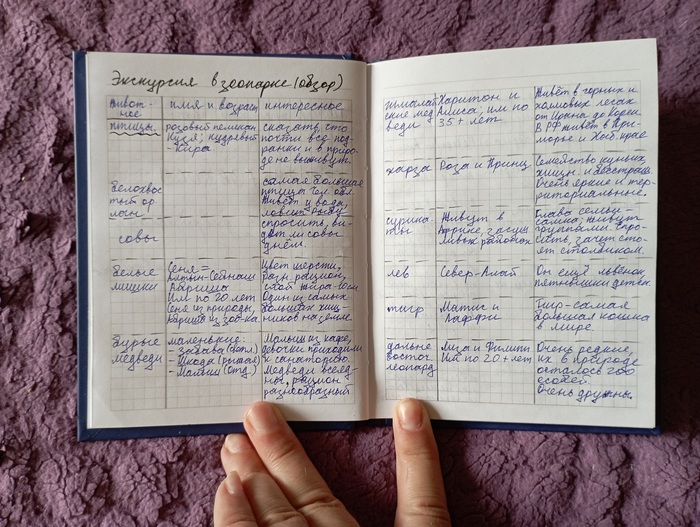 Экскурсия в зоопарке (обзор)
живот-
ное
имя и возраст
интересное
птицы
розовый пеликан
Кузя; кудрявый
- Кира
сказать, что
почти все под-
ранки и в приро-
де не выживут.
белохвос-
тый ор-
лан
самая большая
птица Чел. обл.
Живёт у воды,
ловит рыбу
совы
спросить, ви-
дят ли совы
днём.
белые
мишки
Сеня =
Алтын-Сейнаш
Айриша
Им по 20 лет
Сеня из природы,
Айриша из зоо-ка
Цвет шерсти,
рацион,
Один из самых
больших хищ
ников на земле.
бурые
медведи
маленькие:
- Забава
- Шкода
- Малыш
Малыш из кафе,
девочки приходили
к санаторию
Медведи всеяд-
ны, рацион
разнообразный
гималай
ские мед
веди
Харитон и
Алиса; им по
35 + лет
Живёт в горных и
холмовых лесах
от Ирана до Кореи
В РФ живёт в При-
морье и Хаб. крае
харза
Роза и Принц
Семейство куньих,
хищн. и бесстраш.
Очень яркие и тер-
риториальные.
сурика-
ты
Живут в
Африке, в засуш
ливых районах
Глава семьи -
самка, живут
группами. Спро-
сить, зачем сто-
ят столбиком.
лев
Север-Алай
Он ещё львёнок,
пятнышки детск.
тигр
Матис и
Лаффи
Тигр - самая
большая кошка
в мире.
дальне
восточ
леопард
Лиза и Филипп
Им по 20 + лет
Очень редкие,
их в природе
осталось 200
особей.
Очень дружны.